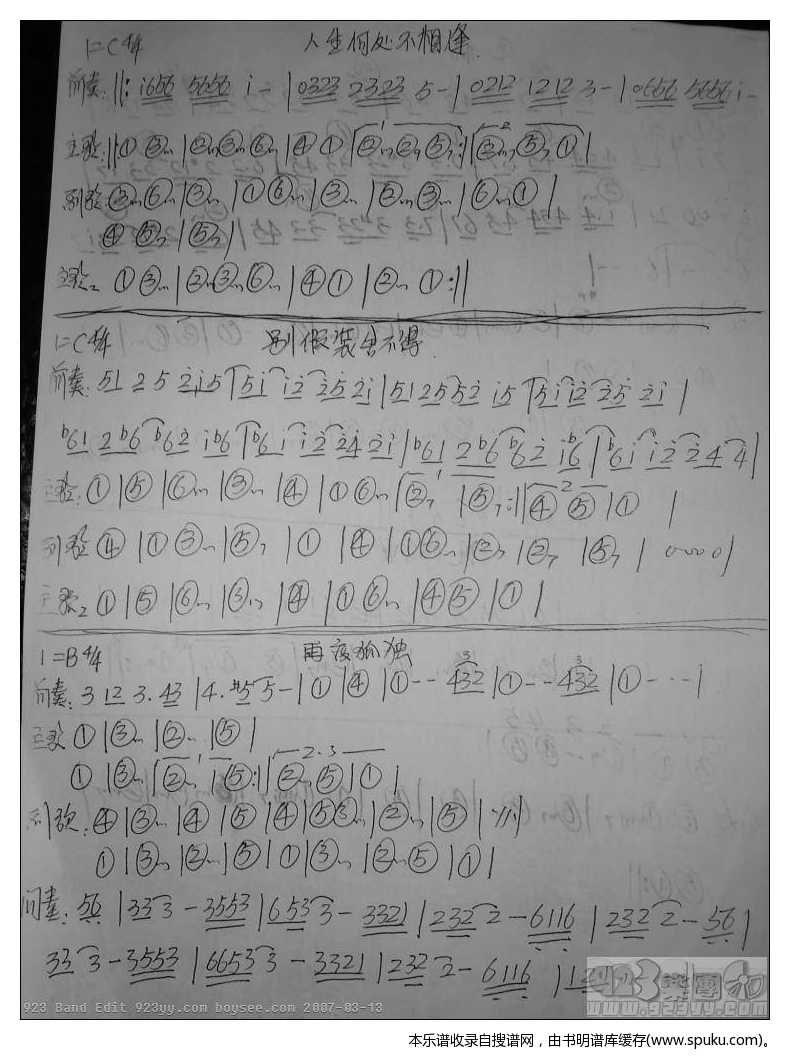 1=C 4/4 人生何处不相逢
前奏: ‖: i656 5656 i - | 0323 2323 5 - | 0212 1212 3 - | 0656 5656 i -
主歌: ‖: ① ③m | ②m ③m ⑥m | ④ ① | ②m ②m ⑤7 :‖ ②m7 ⑤7 ① |
副歌: ③m ⑥m | ③m | ① ⑥m | ③m | ②m ③m | ⑥m ① |
④ ⑤7 | ⑤7 |
主歌2 ① ③m | ②m ③m ⑥m | ④ ① | ②m ① :‖
1=C 4/4 别假装舍不得
前奏: 51 2 5 2i5 | 5i i2 25 2i | 51 2 5 52 i5 | 5i i2 25 2i |
b61 2 b6 b62 i b6 | b6i i2 24 2i | b61 2 b6 b62 i b6 | b6i i2 2 4 4 |
主歌: ① | ⑤ | ⑥m | ③m | ④ | ① ⑥m | ②7 | ⑤7 :‖ ④ ⑤ | ① |
副歌 ④ | ① ③m | ⑤7 | ① | ④ | ① ⑥m | ②7 | ②7 | ⑤7 | 0000 |
主歌2 ① | ⑤ | ⑥m | ③m | ④ | ① ⑥m | ④ ⑤ | ① |
1=B 4/4 再度孤独
前奏: 3 12 3. 43 | 4. #5 5 - | ① | ④ | ① - - 432 | ① - - 432 | ① - - - |
主歌 ① | ③m | ②m | ⑤ |
① | ③m | ②m | ⑤ :‖ ②m ⑤ | ① |
副歌: ④ | ③m | ④ | ⑤ | ④ | ⑤ ③m | ②m | ⑤ |
① | ③m | ②m | ⑤ | ① | ③m | ②m ⑤ | ① |
间奏: 56 | 33 3 - 3553 | 653 3 - 3321 | 232 2 - 6116 | 232 2 - 56 |
33 3 - 3553 | 6653 3 - 3321 | 232 2 - 6116 |
923 Band Edit 923yy.com boysee.com 2007-03-13
www.923yy.com
本乐谱收录自搜谱网，由书明谱库缓存(www.spuku.com)。